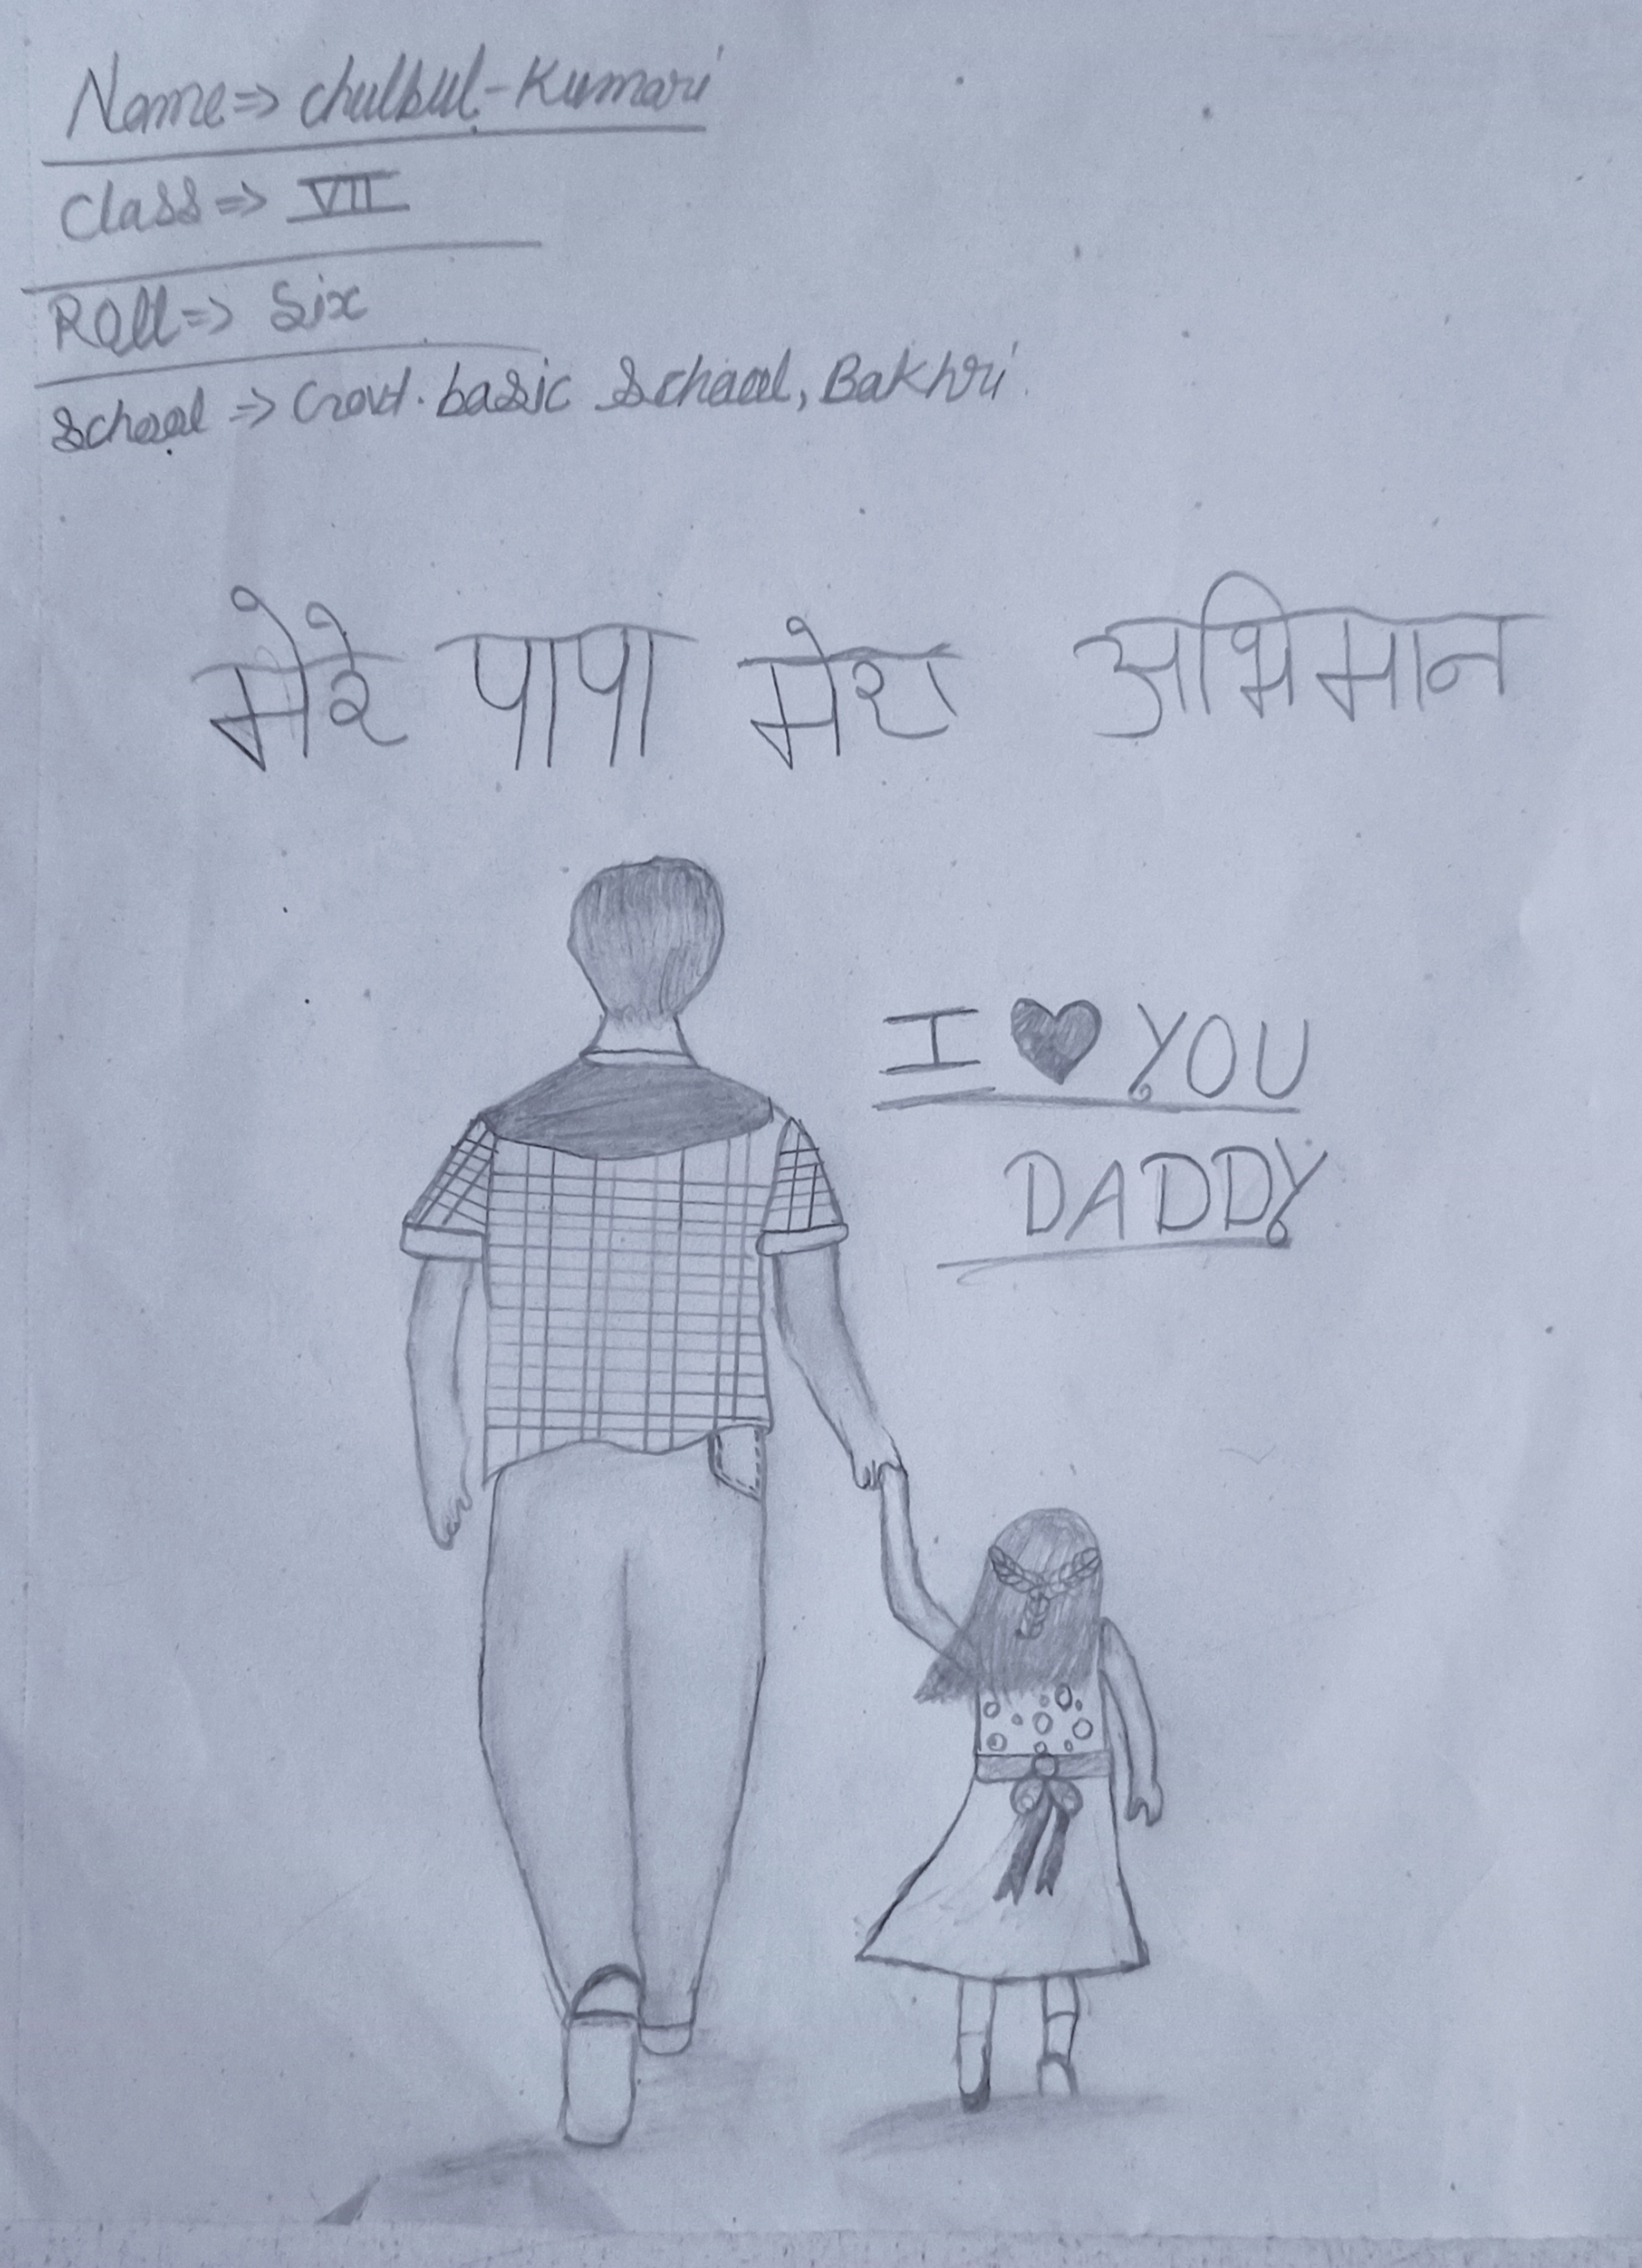 Name => chulbul-Kumari
Class => VII
Roll => Six
School => Govt. basic School, Bakhri
मेरे पापा मेरा अभिमान
I ♥ YOU
DADDY